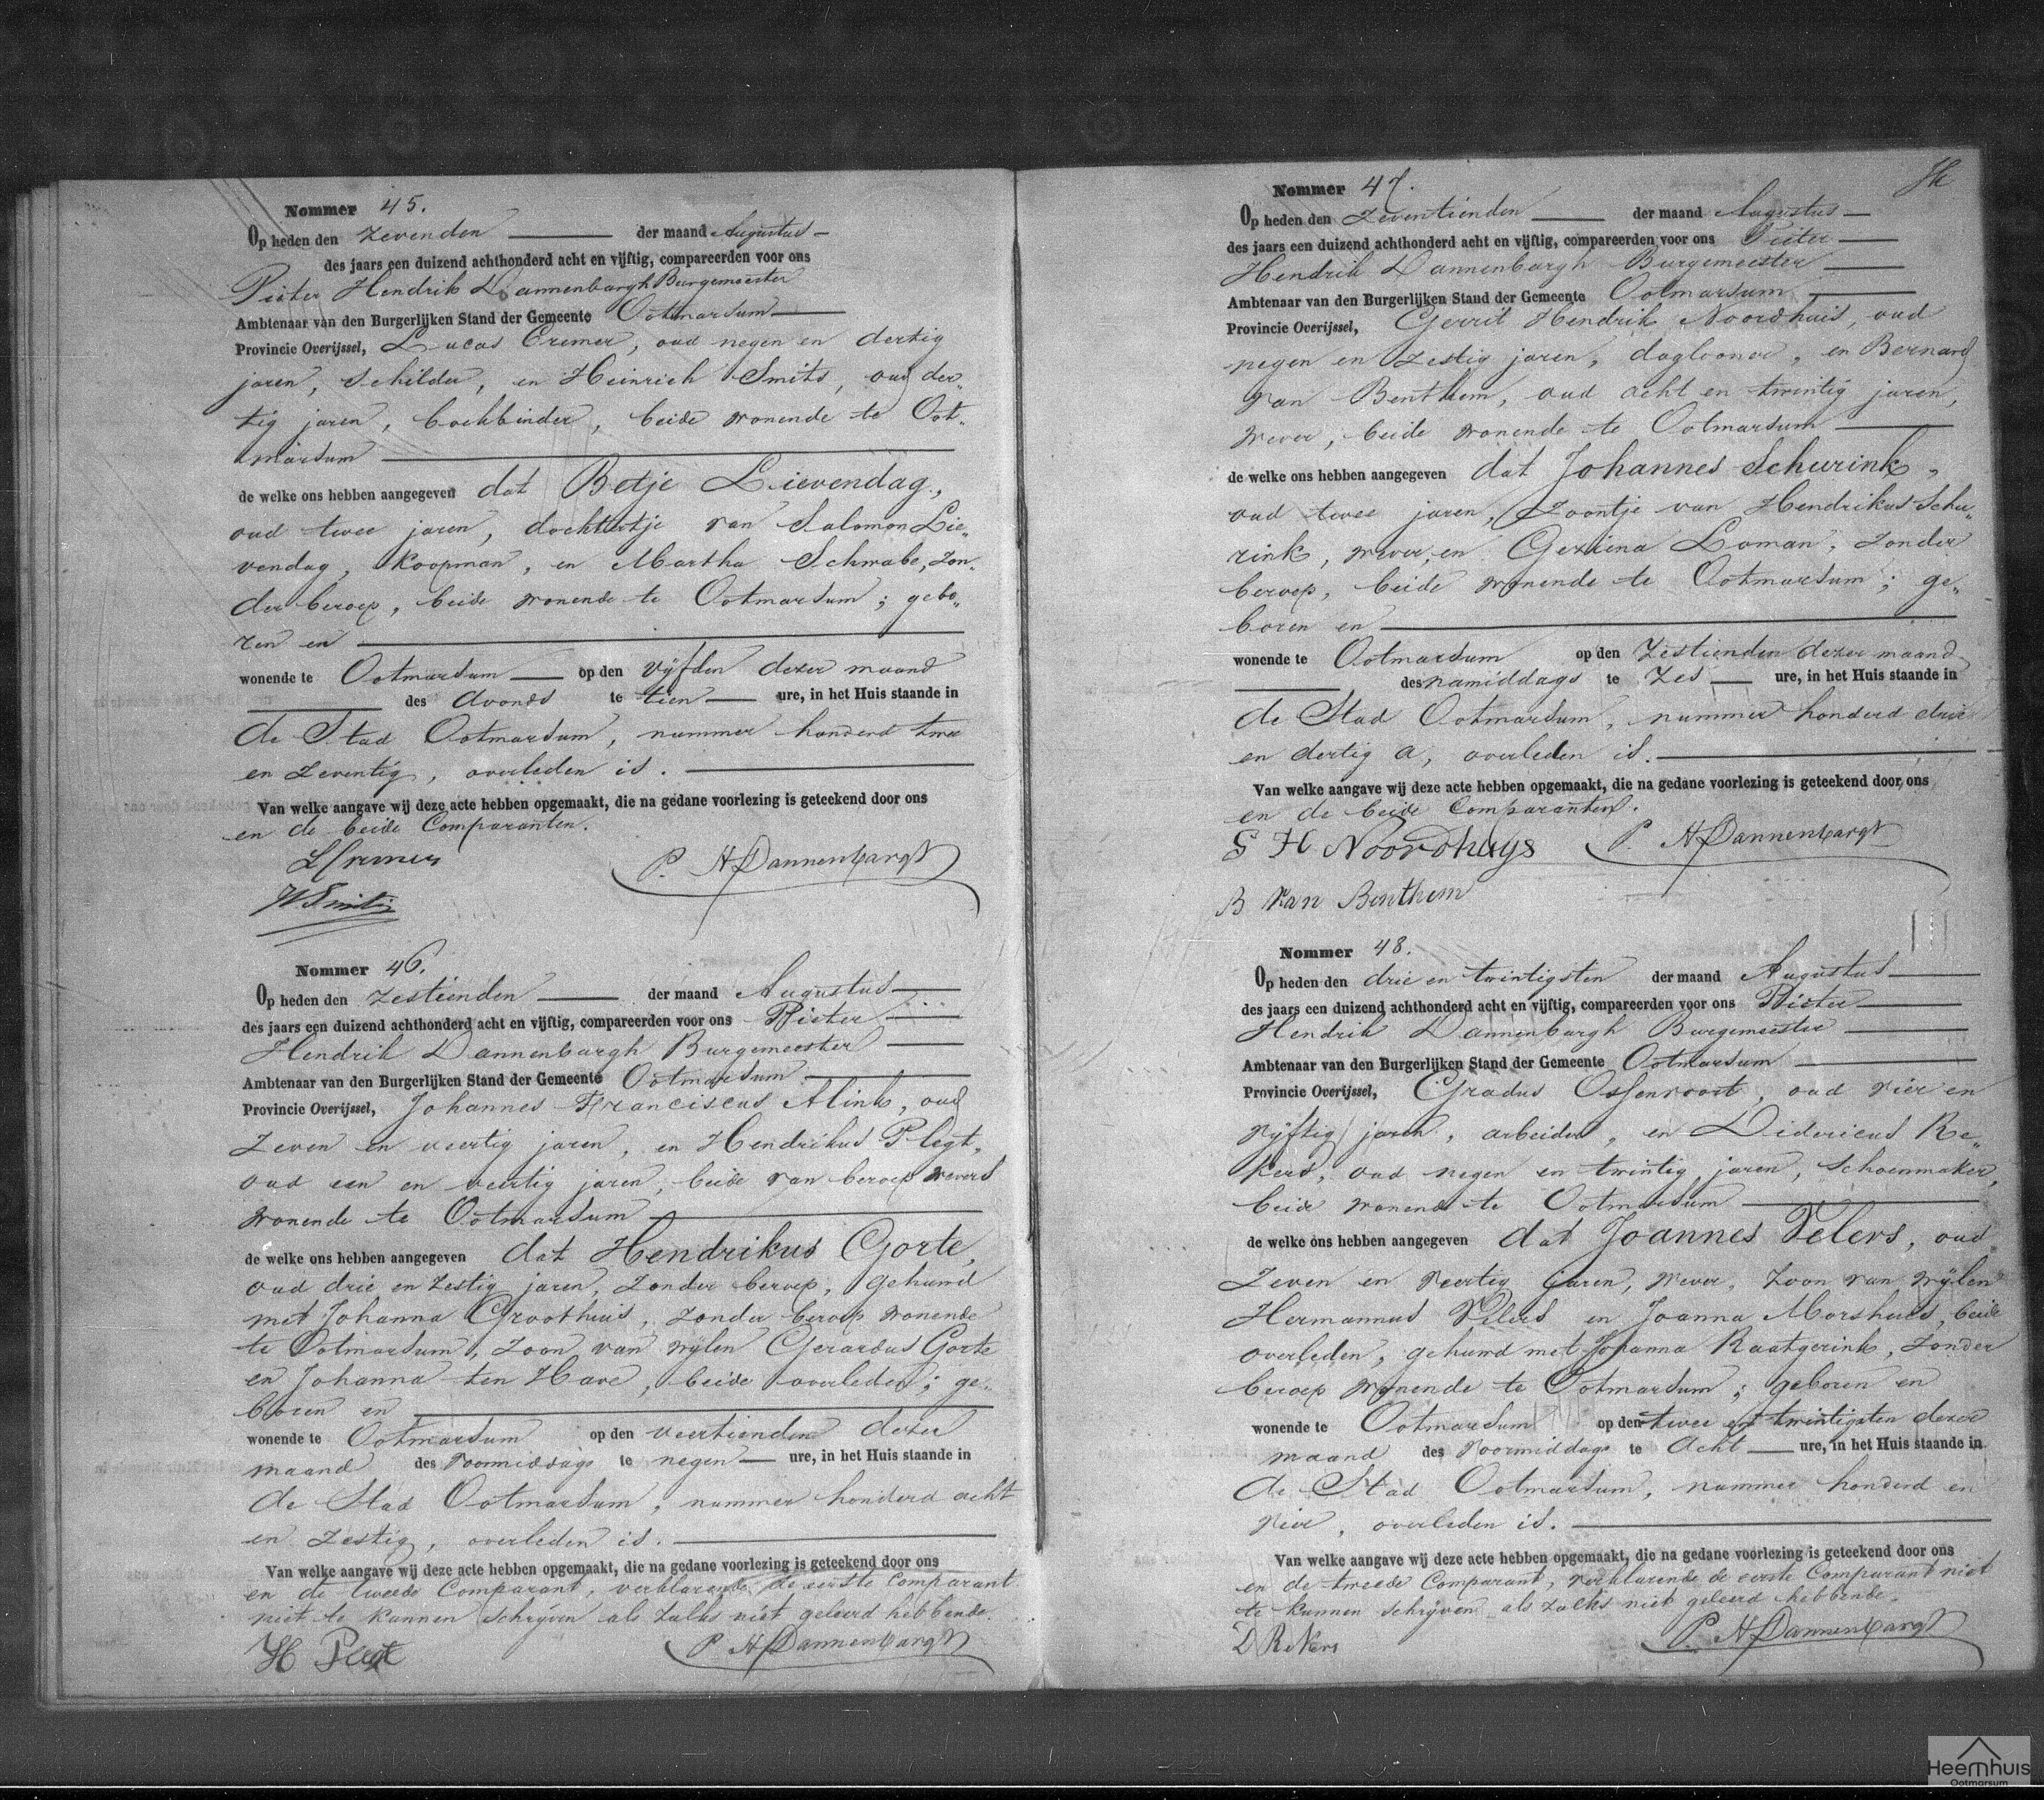 Nommer 45.
Op heden den zevenden der maand Augustus
des jaars een duizend achthonderd acht en vijftig, compareerden voor ons
Pieter Hendrik Dannenbargh Burgemeester
Ambtenaar van den Burgerlijken Stand der Gemeente Ootmarsum
Provincie Overijssel, Lucas Cremer, oud negen en dertig
jaren, Schilder, en Heinrich Smits, oud der„
tig jaren, boekbinder, beide wonende te Oot„
marsum
de welke ons hebben aangegeven dat Betje Lievendag,
oud twee jaren, dochtertje van Salomon Lie„
vendag, koopman, en Martha Schwabe, zon„
der beroep, beide wonende te Ootmarsum; gebo„
ren en
wonende te Ootmarsum op den vijfden dezer maand
des avonds te tien ure, in het Huis staande in
de Stad Ootmarsum, nummer honderd twee
en zeventig, overleden is.
Van welke aangave wij deze acte hebben opgemaakt, die na gedane voorlezing is geteekend door ons
en de beide Comparanten.
L Cremer
P. H Dannenbargh
H Smits
Nommer 46.
Op heden den zestienden der maand Augustus
des jaars een duizend achthonderd acht en vijftig, compareerden voor ons Pieter
Hendrik Dannenbargh Burgemeester
Ambtenaar van den Burgerlijken Stand der Gemeente Ootmarsum
Provincie Overijssel, Johannes Franciscus Alink, oud
zeven en veertig jaren, en Hendrikus Plegt,
oud een en veertig jaren, beide van beroep wevers
wonende te Ootmarsum
de welke ons hebben aangegeven dat Hendrikus Gorte,
oud drie en zestig jaren, zonder beroep, gehuwd
met Johanna Groothuis, zonder beroep wonende
te Ootmarsum, zoon van wijlen Gerardus Gorte
en Johanna ten Have, beide overleden; ge„
boren en
wonende te Ootmarsum op den veertienden dezer
maand des voormiddags te negen ure, in het Huis staande in
de Stad Ootmarsum, nummer honderd acht
en zestig, overleden is.
Van welke aangave wij deze acte hebben opgemaakt, die na gedane voorlezing is geteekend door ons
en de tweede Comparant, verklarende de eerste Comparant
niet te kunnen schrijven als zulks niet geleerd hebbende.
H Plegt
P. H Dannenbargh
Nommer 47.
Op heden den zeventienden der maand Augustus
des jaars een duizend achthonderd acht en vijftig, compareerden voor ons Pieter
Hendrik Dannenbargh Burgemeester
Ambtenaar van den Burgerlijken Stand der Gemeente Ootmarsum
Provincie Overijssel, Gerrit Hendrik Noordhuis, oud
negen en zestig jaren, daglooner, en Bernard
van Benthem, oud acht en twintig jaren,
wever, beide wonende te Ootmarsum
de welke ons hebben aangegeven dat Johannes Schurink,
oud twee jaren, zoontje van Hendrikus Schu„
rink, wever, en Geziena Loman, zonder
beroep, beide wonende te Ootmarsum; ge„
boren en
wonende te Ootmarsum op den zestienden dezer maand
des namiddags te zes ure, in het Huis staande in
de Stad Ootmarsum, nummer honderd drie
en dertig a, overleden is.
Van welke aangave wij deze acte hebben opgemaakt, die na gedane voorlezing is geteekend door ons
en de beide Comparanten.
G H Noordhuys
P. H Dannenbargh
B van Benthem
Nommer 48.
Op heden den drie en twintigsten der maand Augustus
des jaars een duizend achthonderd acht en vijftig, compareerden voor ons Pieter
Hendrik Dannenbargh Burgemeester
Ambtenaar van den Burgerlijken Stand der Gemeente Ootmarsum
Provincie Overijssel, Gradus Ossenvoort, oud vier en
vijftig jaren, arbeider, en Didericus Re„
kers, oud negen en twintig jaren, Schoenmaker,
beide wonende te Ootmarsum
de welke ons hebben aangegeven dat Joannes Velers, oud
zeven en veertig jaren, wever, zoon van wijlen
Hermannus Velers en Joanna Morshuis, beide
overleden, gehuwd met Johanna Raatgerink, zonder
beroep wonende te Ootmarsum; geboren en
wonende te Ootmarsum op den twee en twintigsten dezer
maand des voormiddags te acht ure, in het Huis staande in
de Stad Ootmarsum, nummer honderd en
vier, overleden is.
Van welke aangave wij deze acte hebben opgemaakt, die na gedane voorlezing is geteekend door ons
en de tweede Comparant, verklarende de eerste Comparant niet
te kunnen schrijven als zulks niet geleerd hebbende.
D Rekers
P. H Dannenbargh
Heemhuis
Ootmarsum